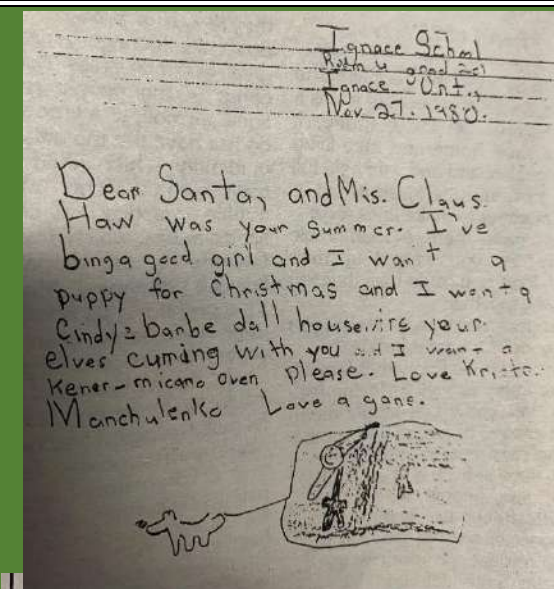 Ignace School
Room 4 grad 2
Ignace Ont.,
Nov 27. 1980.
Dear Santa, and Mis. Claus.
Haw was your summer. I've
bing a good girl and I wan't a
puppy for Christmas and I want a
Cindy barbe dall house. Are your
elves cuming with you and I want a
Kener-micano oven please. Love
Manchulenko Love a gane.